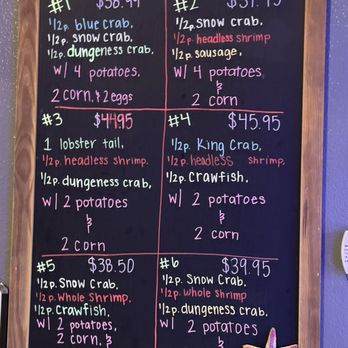 #1 $38.99
1/2p. blue crab,
1/2p. snow crab,
1/2p. dungeness crab,
w/ 4 potatoes,
2 corn, & 2 eggs
#2
1/2p. snow crab,
1/2p. headless shrimp
1/2p. sausage,
w/ 4 potatoes,
&
2 corn
#3 $44.95
1 lobster tail,
1/2p. headless shrimp.
1/2p. dungeness crab,
w/ 2 potatoes
&
2 corn
#4 $45.95
1/2p. King Crab,
1/2p. headless shrimp,
1/2p. crawfish,
w/ 2 potatoes
&
2 corn
#5 $38.50
1/2p. Snow Crab,
1/2p. Whole Shrimp,
1/2p. crawfish,
w/ 2 potatoes,
2 corn, &
#6 $39.95
1/2p. Snow Crab.
1/2p. whole shrimp
1/2p. dungeness crab,
w/ 2 potatoes
&